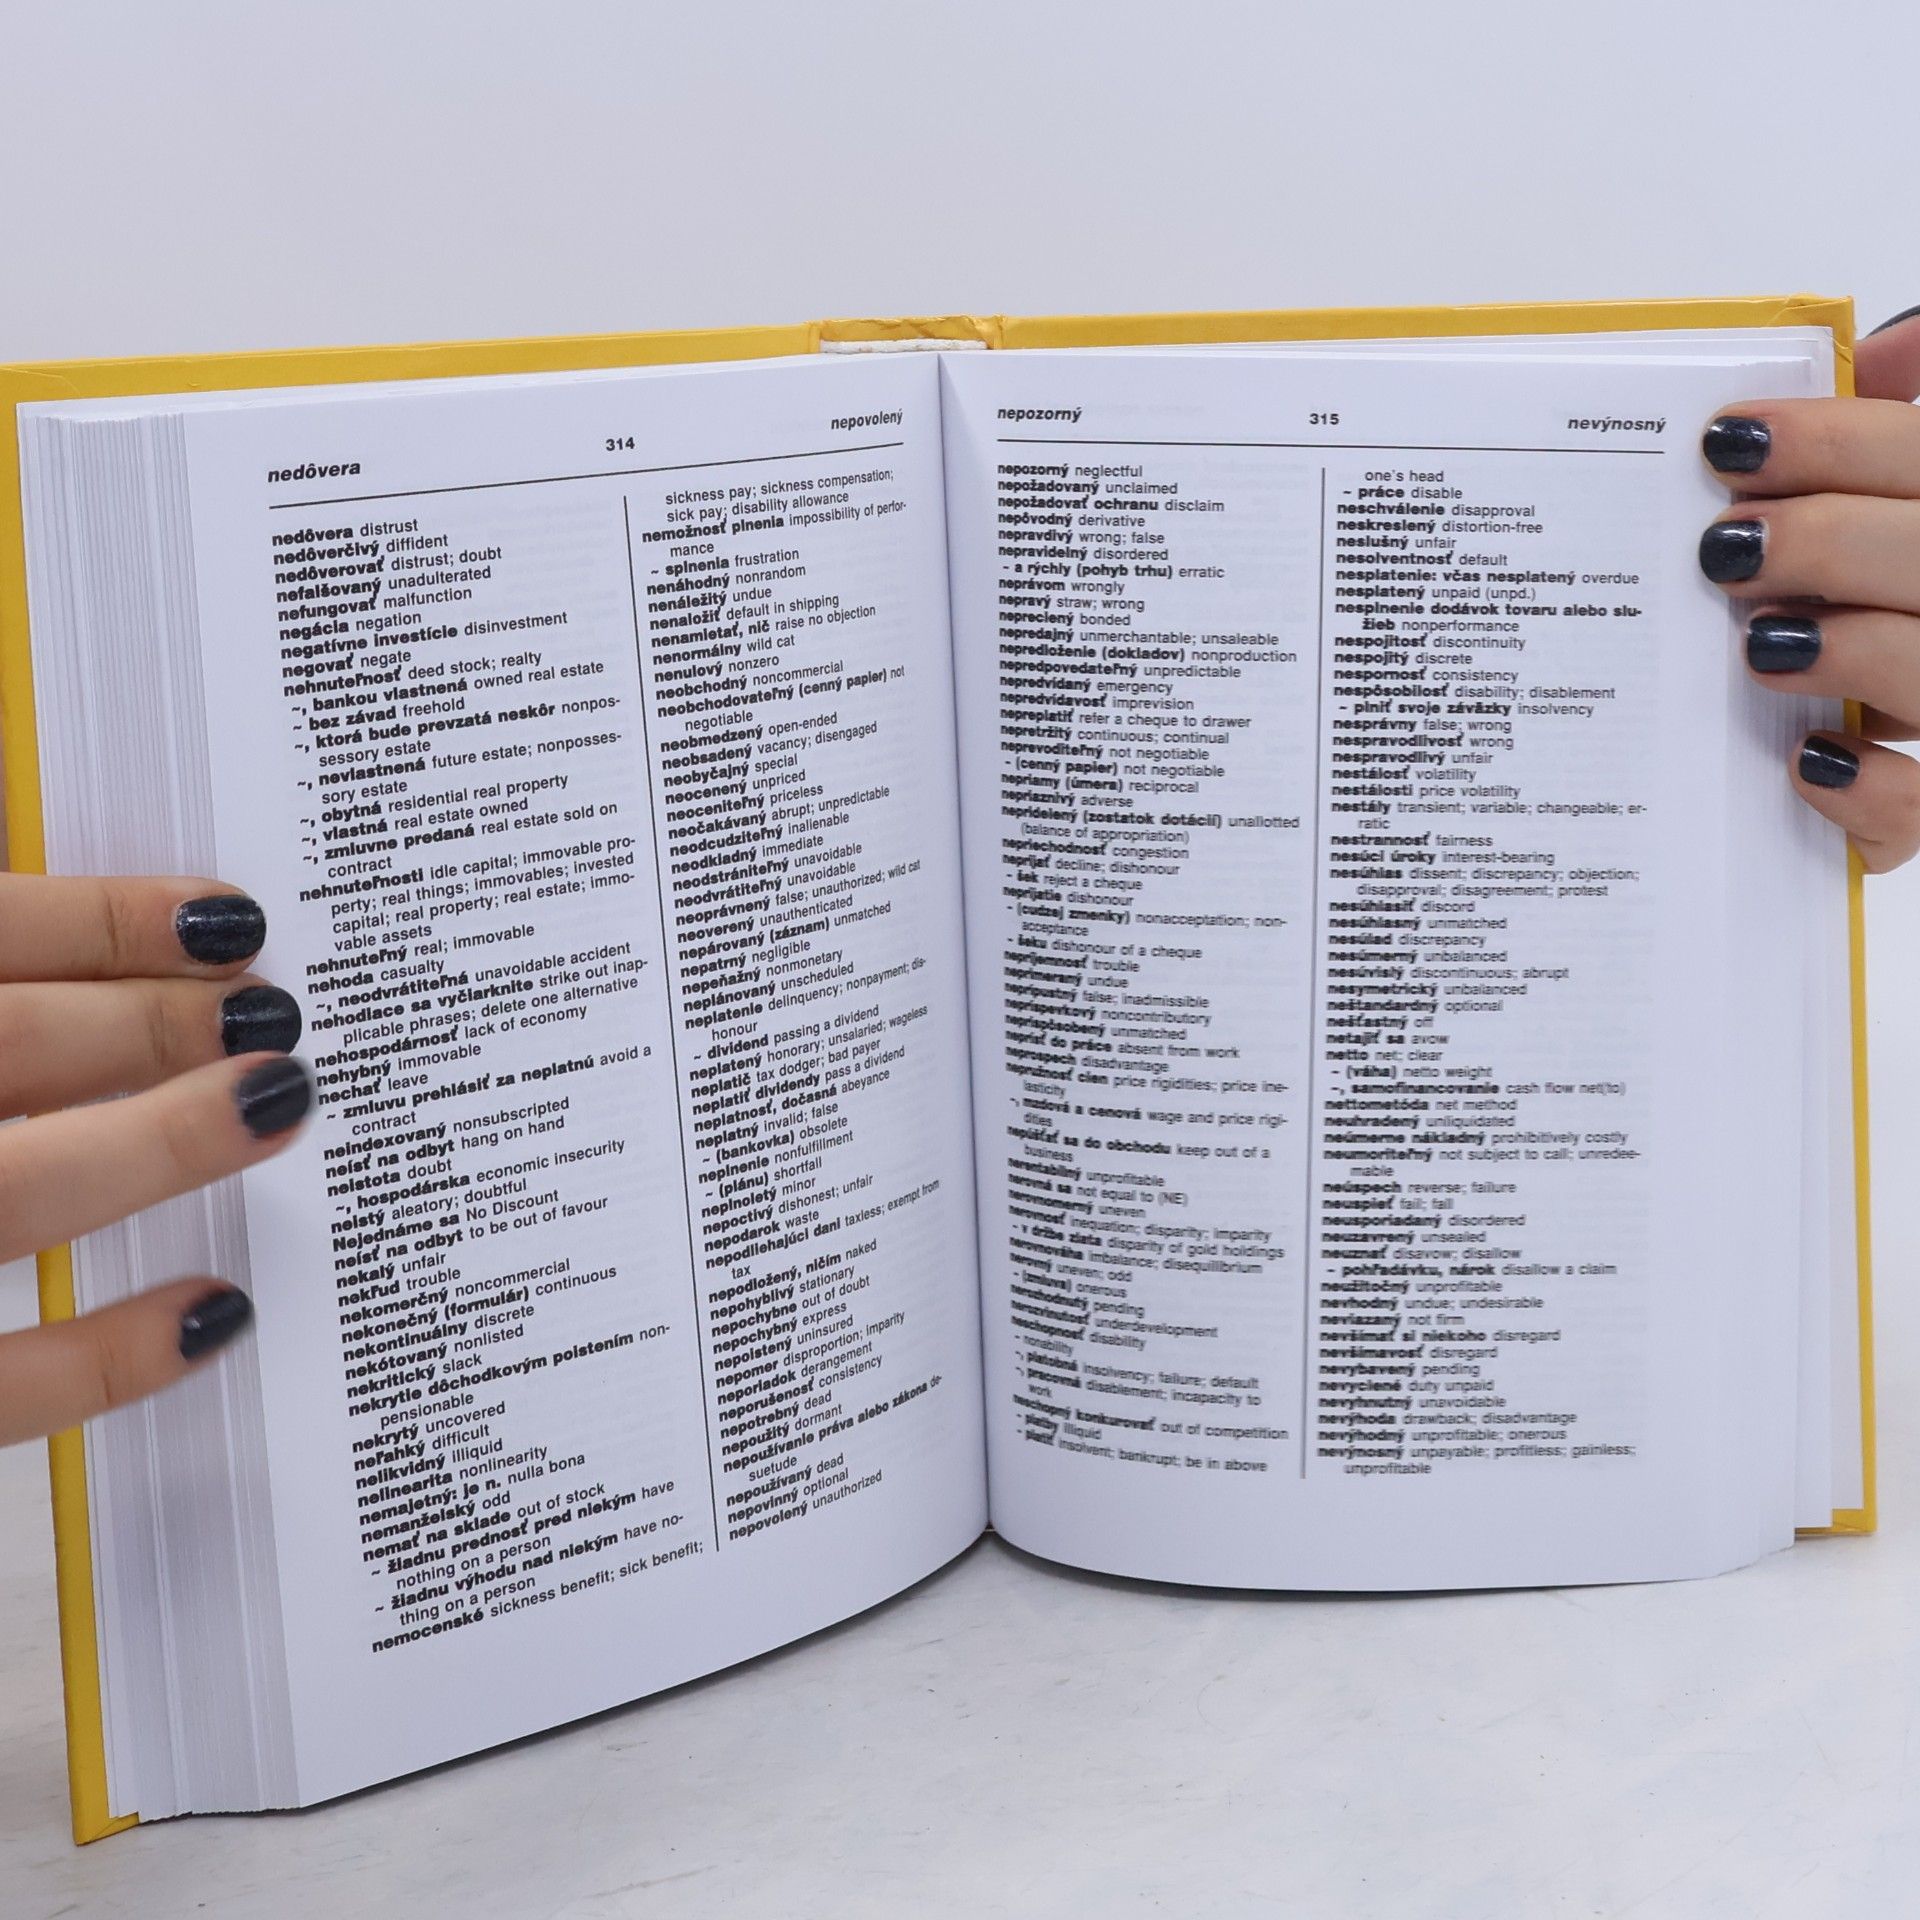 nedôvera 314 nepovolený
nedôvera distrust
nedôverčivý diffident
nedôverovať distrust; doubt
nefalšovaný unadulterated
nefungovať malfunction
negácia negation
negatívne investície disinvestment
negovať negate
nehnuteľnosť deed stock; realty
~, bankou vlastnená owned real estate
~ bez závad freehold
~, ktorá bude prevzatá neskôr nonpos-
sessory estate
~, nevlastnená future estate; nonposses-
sory estate
~, obytná residential real property
~, vlastná real estate owned
~, zmluvne predaná real estate sold on
contract
nehnuteľnosti idle capital; immovable pro-
perty; real things; immovables; invested
capital; real property; real estate; immo-
vable assets
nehnuteľný real; immovable
nehoda casualty
~, neodvrátiteľná unavoidable accident
nehodiace sa vyčiarknite strike out inap-
plicable phrases; delete one alternative
nehospodárnosť lack of economy
nehybný immovable
nechať leave
~ zmluvu prehlásiť za neplatnú avoid a
contract
neindexovaný nonsubscripted
neísť na odbyt hang on hand
neistota doubt
~, hospodárska economic insecurity
neistý aleatory; doubtful
Nejednáme sa No Discount
neísť na odbyt to be out of favour
nekalý unfair
nekľud trouble
nekomerčný noncommercial
nekonečný (formulár) continuous
nekontinuálny discrete
nekótovaný nonlisted
nekritický slack
nekrytie dôchodkovým poistením non-
pensionable
nekrytý uncovered
neľahký difficult
nelikvidný illiquid
nelinearita nonlinearity
nemajetný: je n. nulla bona
nemanželský odd
nemať na sklade out of stock
~ žiadnu prednosť pred niekým have
nothing on a person
~ žiadnu výhodu nad niekým have no-
thing on a person
nemocenské sickness benefit; sick benefit;
sickness pay; sickness compensation;
sick pay; disability allowance
nemožnosť plnenia impossibility of perfor-
mance
~ splnenia frustration
nenáhodný nonrandom
nenáležitý undue
nenaložiť default in shipping
nenamietať, nič raise no objection
nenormálny wild cat
nenulový nonzero
neobchodný noncommercial
neobchodovateľný (cenný papier) not
negotiable
neobmedzený open-ended
neobsadený vacancy; disengaged
neobyčajný special
neocenený unpriced
neoceniteľný priceless
neočakávaný abrupt; unpredictable
neodcudziteľný inalienable
neodkladný immediate
neodstrániteľný unavoidable
neodvrátiteľný unavoidable
neoprávnený false; unauthorized; wild cat
neoverený unauthenticated
nepárovaný (záznam) unmatched
nepatrný negligible
nepeňažný nonmonetary
neplánovaný unscheduled
neplatenie delinquency; nonpayment; dis-
honour
~ dividend passing a dividend
neplatený honorary; unsalaried; wageless
neplatič tax dodger; bad payer
neplatiť dividendy pass a dividend
neplatnosť, dočasná abeyance
neplatný invalid; false
~ (bankovka) obsolete
neplnenie nonfulfillment
~ (plánu) shortfall
neplnoletý minor
nepoctivý dishonest; unfair
nepodarok waste
nepodliehajúci dani taxless; exempt from
tax
nepodložený, ničím naked
nepohyblivý stationary
nepochybne out of doubt
nepochybný express
nepoistený uninsured
nepomer disproportion; imparity
neporiadok derangement
neporušenosť consistency
nepotrebný dead
nepoužitý dormant
nepoužívanie práva alebo zákona de-
suetude
nepoužívaný dead
nepovinný optional
nepovolený unauthorized
nepozorný 315 nevýnosný
nepozorný neglectful
nepožadovaný unclaimed
nepožadovať ochranu disclaim
nepôvodný derivative
nepravdivý wrong; false
nepravidelný disordered
~ a rýchly (pohyb trhu) erratic
neprávom wrongly
nepravý straw; wrong
nepreclený bonded
nepredajný unmerchantable; unsaleable
nepredloženie (dokladov) nonproduction
nepredpovedateľný unpredictable
nepredvídaný emergency
nepredvídavosť imprevision
nepreplatiť refer a cheque to drawer
nepretržitý continuous; continual
neprevoditeľný not negotiable
~ (cenný papier) not negotiable
nepriamy (úmera) reciprocal
nepriaznivý adverse
nepridelený (zostatok dotácií) unallotted
(balance of appropriation)
nepriechodnosť congestion
neprijať decline; dishonour
~ šek reject a cheque
neprijatie dishonour
~ (cudzej zmenky) nonacceptation; non-
acceptance
~ šeku dishonour of a cheque
nepríjemnosť trouble
neprimeraný undue
neprípustný false; inadmissible
nepríspevkový noncontributory
neprispôsobený unmatched
neprísť do práce absent from work
neprospech disadvantage
nepružnosť cien price rigidities; price ine-
lasticity
~, mzdová a cenová wage and price rigi-
dities
nepúšťať sa do obchodu keep out of a
business
nerentabilný unprofitable
nerovná sa not equal to (NE)
nerovnomerný uneven
nerovnosť inequation; disparity; imparity
~ v držbe zlata disparity of gold holdings
nerovnováha imbalance; disequilibrium
nerovný uneven; odd
~ (zmluva) onerous
nerozhodnutý pending
nerozvinutosť underdevelopment
neschopnosť disability
~ nonability
~, platobná insolvency; failure; default
~, pracovná disablement; incapacity to
work
neschopný konkurovať out of competition
~ platby illiquid
~ platiť insolvent; bankrupt; be in above
one's head
~ práce disable
neschválenie disapproval
neskreslený distortion-free
neslušný unfair
nesolventnosť default
nesplatenie: včas nesplatený overdue
nesplatený unpaid (unpd.)
nesplnenie dodávok tovaru alebo slu-
žieb nonperformance
nespojitosť discontinuity
nespojitý discrete
nespornosť consistency
nespôsobilosť disability; disablement
~ plniť svoje záväzky insolvency
nesprávny false; wrong
nespravodlivosť wrong
nespravodlivý unfair
nestálosť volatility
nestálosti price volatility
nestály transient; variable; changeable; er-
ratic
nestrannosť fairness
nesúci úroky interest-bearing
nesúhlas dissent; discrepancy; objection;
disapproval; disagreement; protest
nesúhlasiť discord
nesúhlasný unmatched
nesúlad discrepancy
nesúmerný unbalanced
nesúvislý discontinuous; abrupt
nesymetrický unbalanced
neštandardný optional
nešťastný off
netajiť sa avow
netto net; clear
~ (váha) netto weight
~, samofinancovanie cash flow net(to)
nettometóda net method
neuhradený unliquidated
neúmerne nákladný prohibitively costly
neumoriteľný not subject to call; unredee-
mable
neúspech reverse; failure
neuspieť fail; fall
neusporiadaný disordered
neuzavrený unsealed
neuznať disavow; disallow
~ pohľadávku, nárok disallow a claim
neužitočný unprofitable
nevhodný undue; undesirable
neviazaný not firm
nevšímať si niekoho disregard
nevšímavosť disregard
nevybavený pending
nevyclené duty unpaid
nevyhnutný unavoidable
nevýhoda drawback; disadvantage
nevýhodný unprofitable; onerous
nevýnosný unpayable; profitless; gainless;
unprofitable